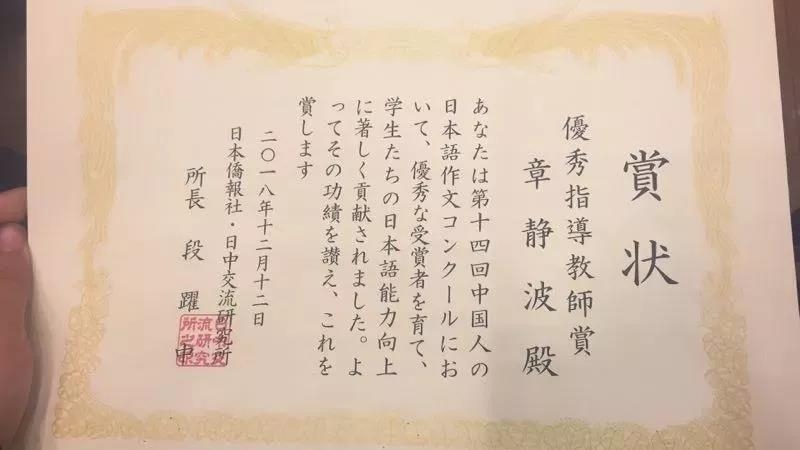 賞状
優秀指導教師賞
章静波殿
あなたは第十四回中国人の
日本語作文コンクールにお
いて、優秀な受賞者を育て、
学生たちの日本語能力向上
に著しく貢献されました。よ
ってその功績を讃え、これを
賞します
二〇一八年十二月十二日
日本僑報社・日中交流研究所
所長 段 躍 中